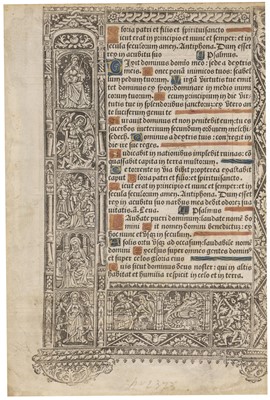 Gloria patri et filio et spiritui sancto
Sicut erat in principio et nunc et semper: et in
secula seculorum amen. Antiphona. Dum esset
rex in accubitu suo Psalmus.
Dixit dominus domino meo: sede a dextris
meis. Donec ponā inimicos tuos: scabel-
lum pedum tuorum. Virgā virtutis tue emit
tet dominus ex syon: dominare in medio inimi
corum tuorum. Tecum principium in die vir
tutis tue in splendoribus sanctorum: ex utero an
te luciferum genui te
Iuravit dominus et non penitebit eum: tu es
sacerdos in eternum secundum ordinem melchi
sedech. Dominus a dextris tuis: confregit in
die ire sue reges.
Iudicabit in nationibus implebit ruinas: cō
quassabit capita in terra multorum.
De torrente in via bibet propterea exaltabit
caput Gloria patri et filio et spiritui sancto.
Sicut erat in principio et nunc et semper: et in
secula seculorum amen. Antiphona. Dum esset
rex in accubitu suo nardus mea dedit odorē sua
vitatis. ā. Leva. Psalmus
Laudate pueri dominum: laudate nomē do
mini Sit nomen domini benedictum: ex
hoc nunc et usqz in seculum.
A solis ortu usqz ad occasum: laudabile nomē
domini Excelsus super omnes gentes domin'
et super celos gloria eius
Quis sicut dominus deus noster: qui in altis
habitat et humilia respicit in celo et in terra